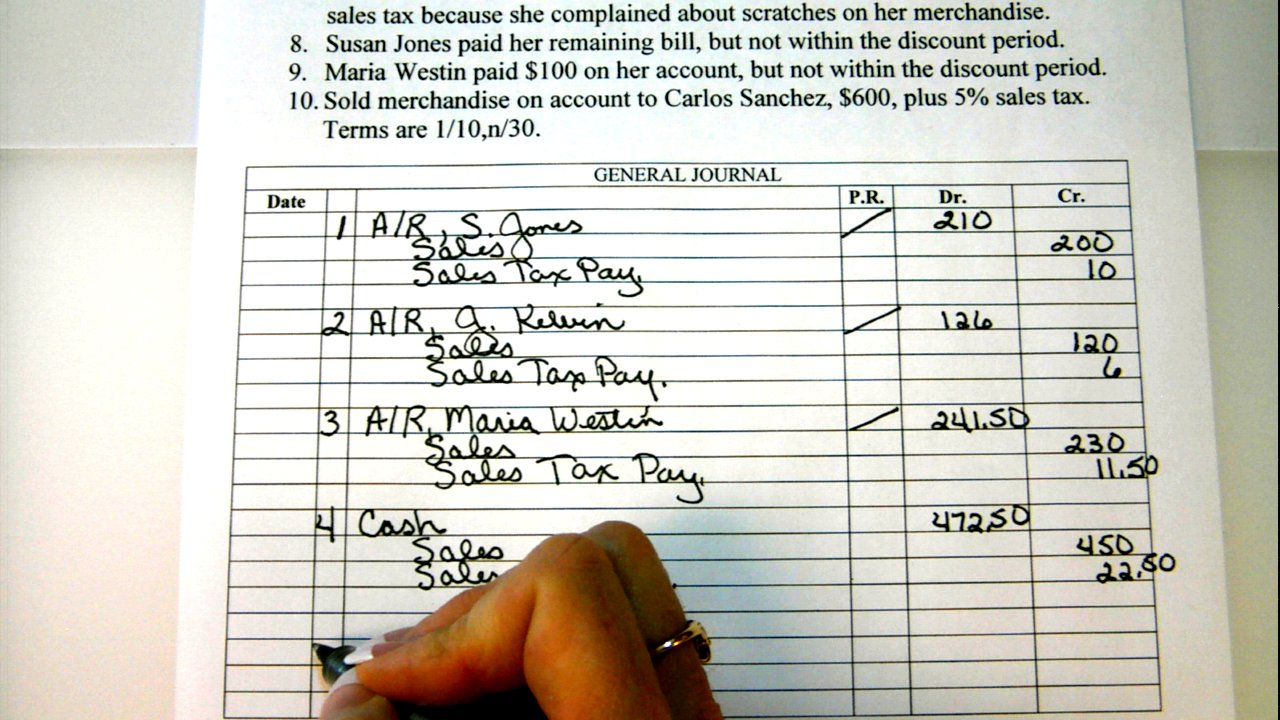 sales tax because she complained about scratches on her merchandise.
8. Susan Jones paid her remaining bill, but not within the discount period.
9. Maria Westin paid $100 on her account, but not within the discount period.
10. Sold merchandise on account to Carlos Sanchez, $600, plus 5% sales tax.
Terms are 1/10,n/30.
GENERAL JOURNAL
Date P.R. Dr. Cr.
1 A/R, S. Jones 210
Sales 200
Sales Tax Pay. 10
2 A/R, J. Kelvin 126
Sales 120
Sales Tax Pay. 6
3 A/R, Maria Westin 241.50
Sales 230
Sales Tax Pay. 11.50
4 Cash 472.50
Sales 450
Sales 22.50